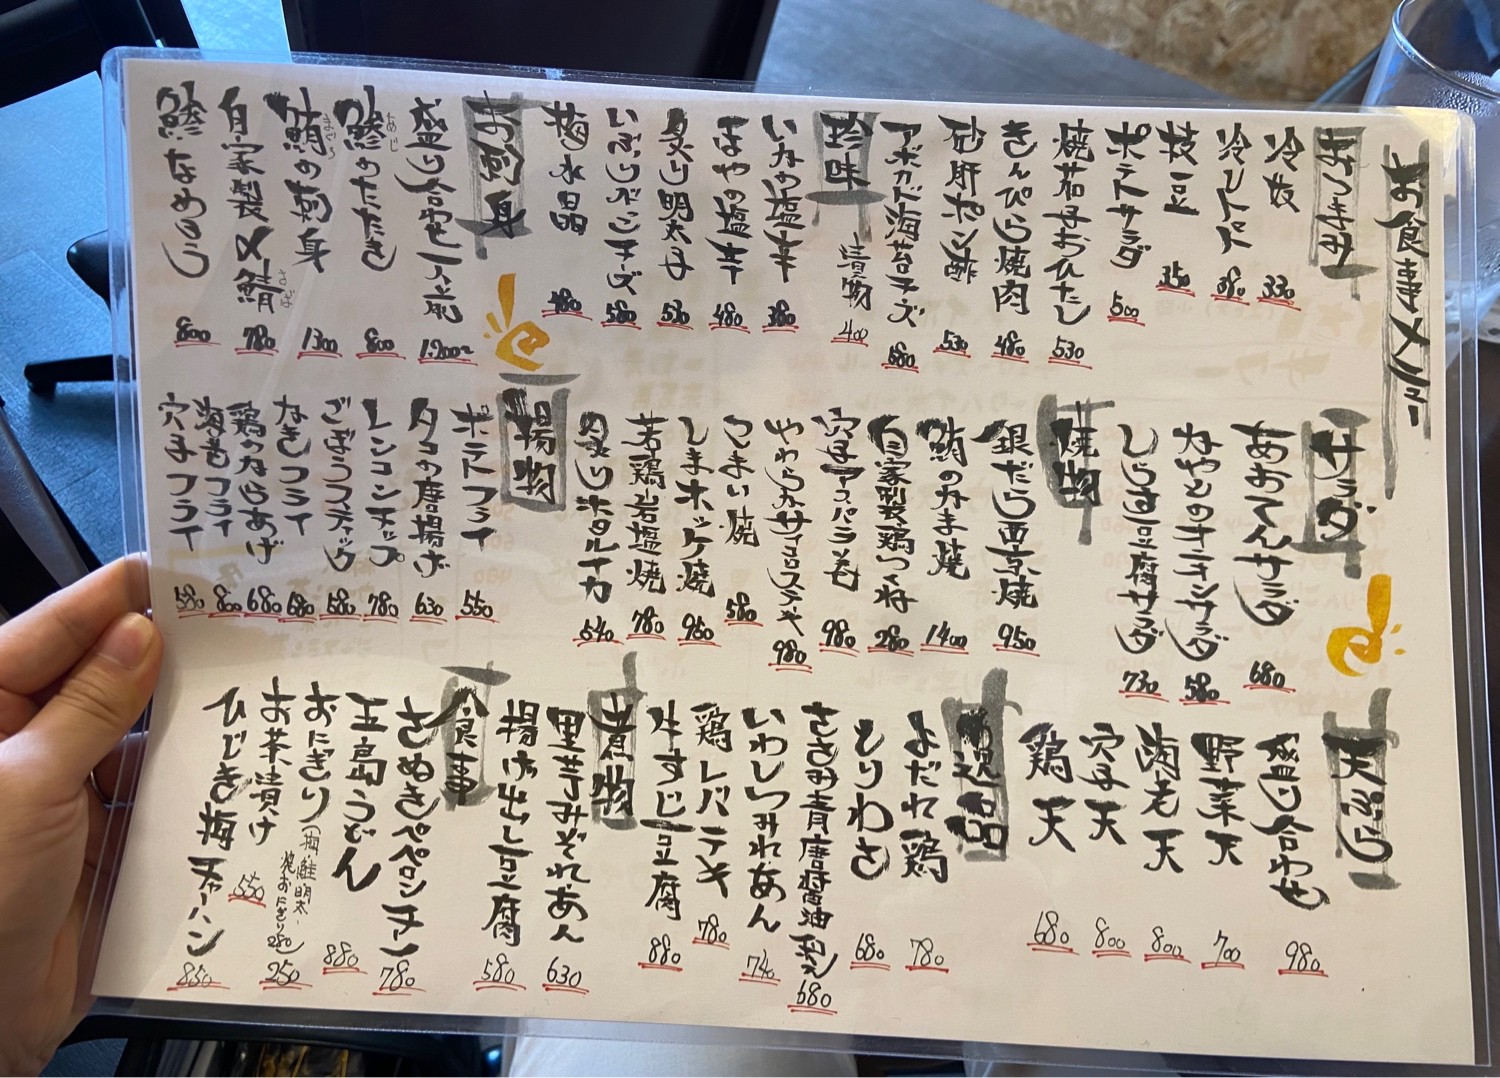 お食事メニュー
おつまみ
冷奴 330
冷しトマト 380
枝豆 350
ポテトサラダ 500
焼茄子おひたし 530
きんぴら焼肉 480
砂肝ポン酢 530
アボカド海苔チーズ 680
漬物 400
珍味
いかの塩辛 380
ほやの塩辛 480
炙り明太子 530
いぶりがっこチーズ 580
梅水晶 480
お刺身
盛り合わせ一人前 1200
鯵のたたき 800
鮪の刺身 1300
まぐろ
自家製〆鯖 780
さば
鯵なめろう 800
サラダ
あおさんサラダ 680
かやとのチキンサラダ 580
しらす豆腐サラダ 730
焼物
銀だら西京焼 950
鮪のかま焼 1400
自家製鶏つくね 280
穴子アスパラ巻 980
やわらかサイコロステーキ 980
こまい焼 580
しまホッケ焼 950
若鶏岩塩焼 780
炙りホタルイカ 540
揚物
ポテトフライ 550
タコの唐揚げ 630
レンコンチップ 780
ごぼうスティック 580
なぎフライ 680
鶏のからあげ 680
海老フライ 800
穴子フライ 580
天ぷら
盛り合わせ 980
野菜天 700
海老天 800
穴子天 800
鶏天 680
逸品
よだれ鶏 780
とりわさ 680
ささみ青唐醤油和え 680
いわしつみれあん 740
鶏レバテキ 780
牛すじ豆腐 880
煮物
里芋みぞれあん 630
揚げ出し豆腐 580
食事
さぬきペペロンチーノ 780
五島うどん 880
おにぎり(梅・鮭・明太・焼おにぎり280) 250
お茶漬け 550
ひじき梅チャーハン 850